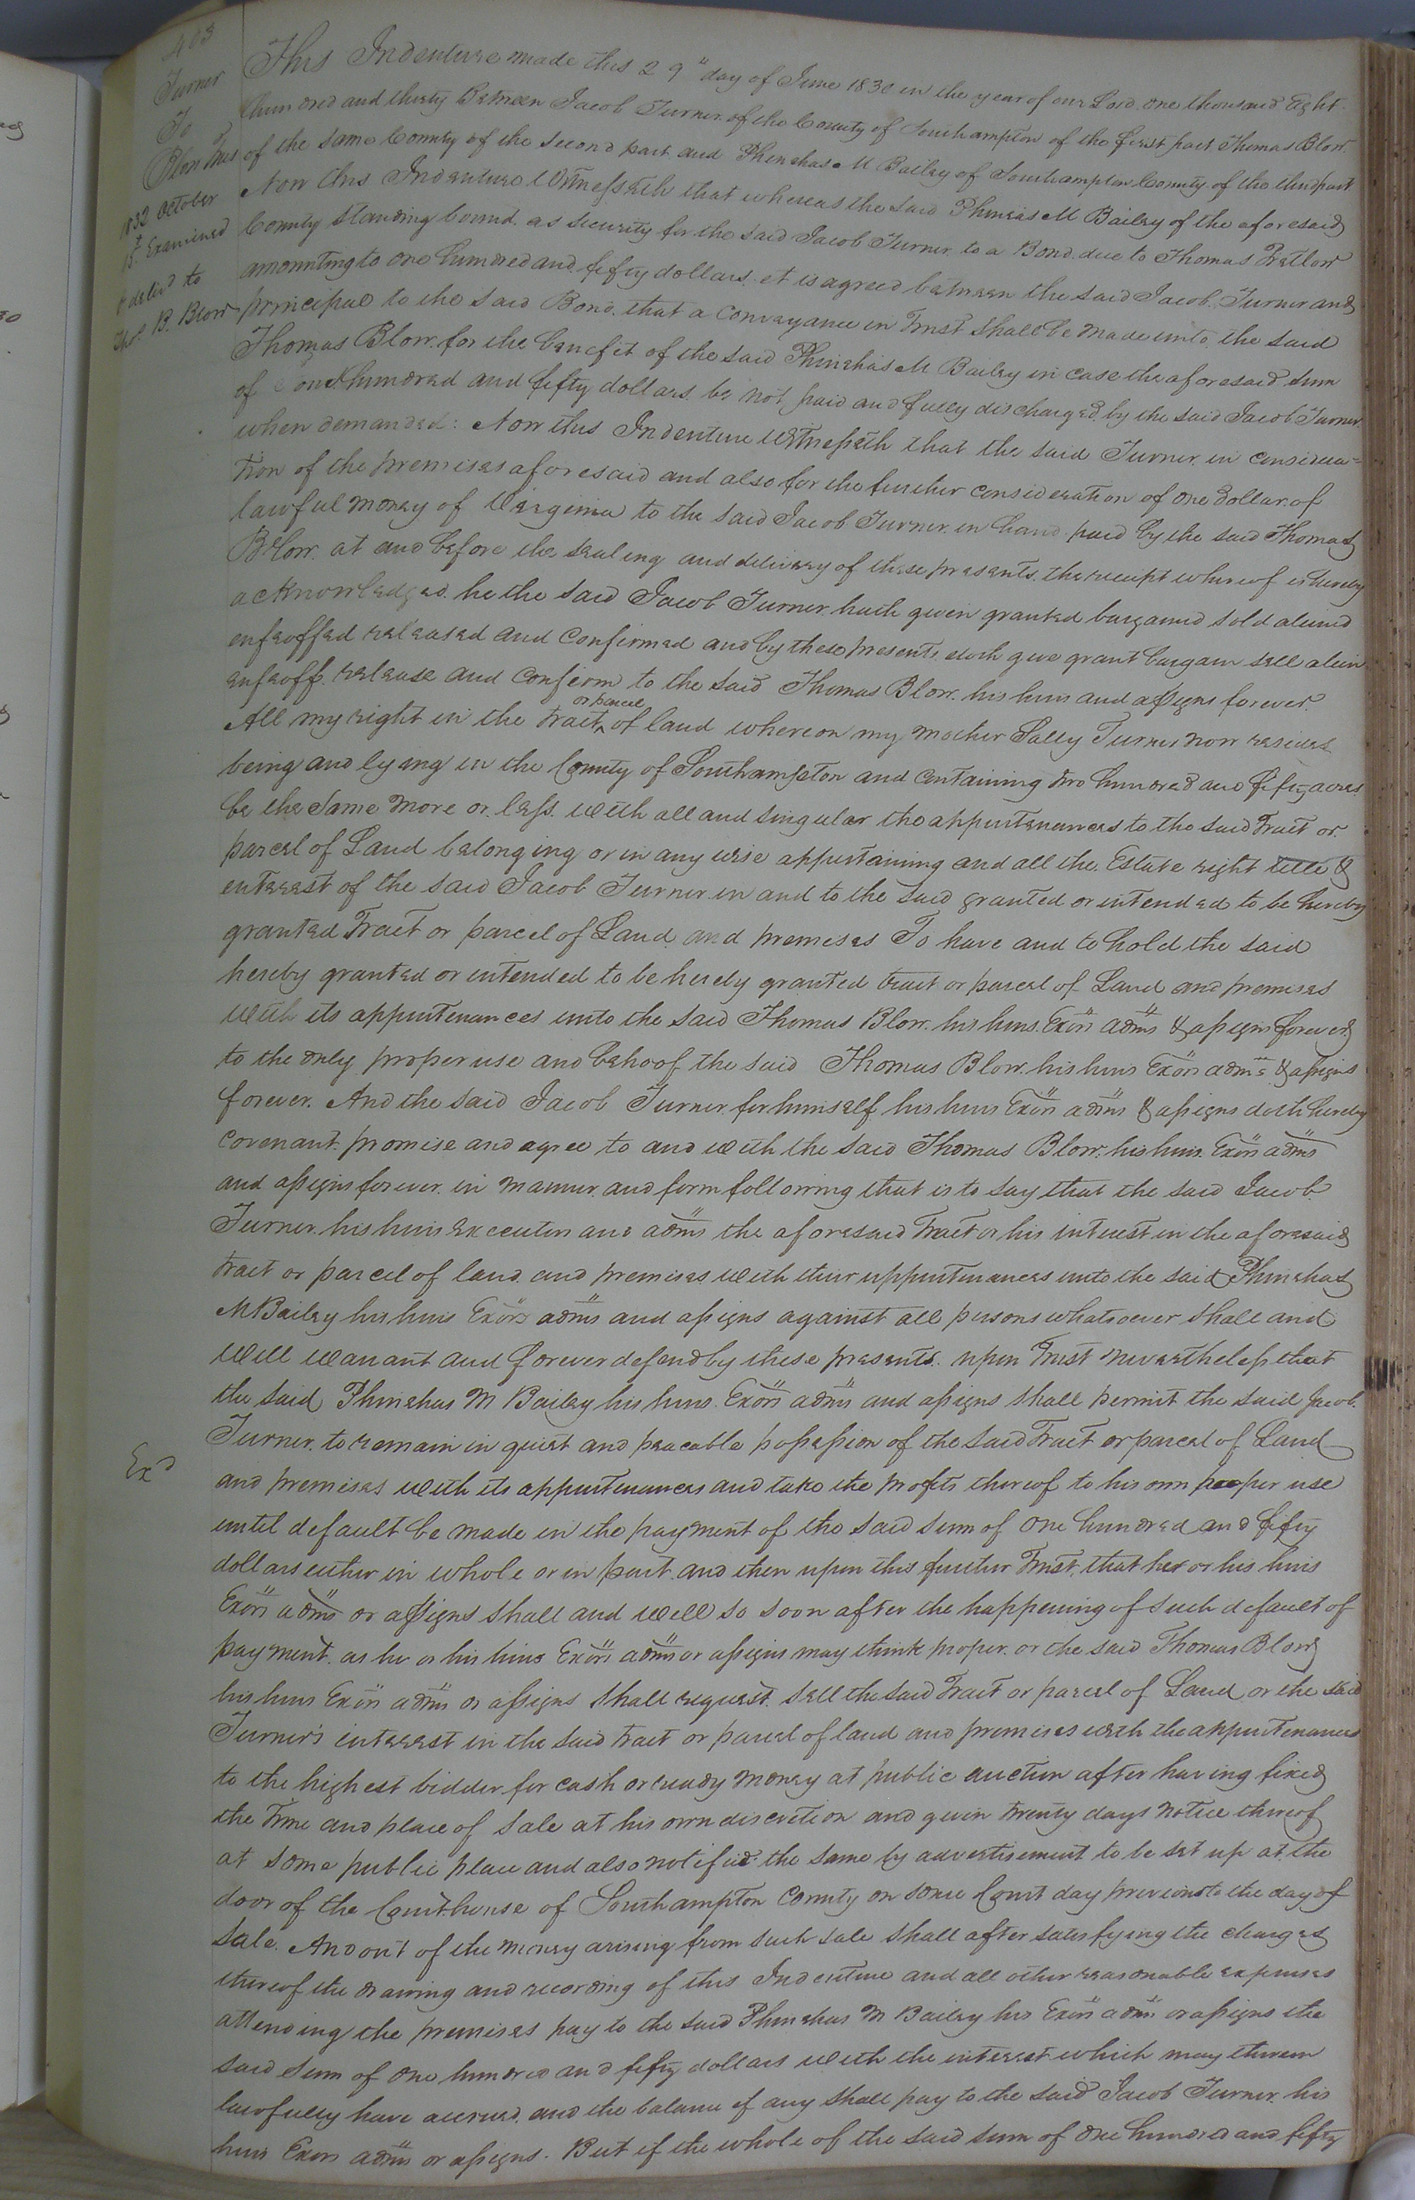 403
Turner
To
Blow Trus
1832 October
15th Examined
& deliv'd to
Thos B. Blow
This Indenture made this 29" day of June 1830 in the year of our Lord one thousand Eight
hundred and thirty Between Jacob Turner of the County of Southampton of the first part Thomas Blow
of the same County of the second part and Phinehas M Bailey of Southampton County of the third part
Now this Indenture Witnesseth that whereas the said Phineas M Bailey of the aforesaid
County standing bound as security for the said Jacob Turner to a Bond due to Thomas Pretlow
amounting to one hundred and fifty dollars it is agreed between the said Jacob Turner and
principal to the said Bond that a conveyance in Trust shall be made unto the said
Thomas Blow for the benefit of the said Phinehas M Bailey in case the aforesaid sum
of one hundred and fifty dollars be not paid and fully discharged by the said Jacob Turner
when demanded: Now this Indenture Witnesseth that the said Turner in considera=
tion of the premises aforesaid and also for the further consideration of one Dollar of
lawful money of Virginia to the said Jacob Turner in hand paid by the said Thomas
Blow at and before the sealing and delivery of these presents the receipt whereof is hereby
acknowledged he the said Jacob Turner hath given granted bargained sold aliened
enfeoffed released and confirmed and by these presents doth give grant bargain sell alien
enfeoff release and confirm to the said Thomas Blow his heirs and assigns forever
or parcel
All my right in the tract of land whereon my mother Sally Turner now resides
being and lying in the County of Southampton and containing two hundred and fifty acres
be the same more or less with all and singular the appurtenances to the said Tract or
parcel of Land belonging or in any wise appertaining and all the Estate right title &
enterest of the said Jacob Turner in and to the said granted or intended to be hereby
granted Tract or parcel of Land and premises To have and to hold the said
hereby granted or intended to be hereby granted tract or parcel of Land and premises
with its appurtenances unto the said Thomas Blow his heirs Exors adms & assigns forever
to the only proper use and behoof the said Thomas Blow his heirs Exors adms & assigns
forever. And the said Jacob Turner for himself his heirs Exors adms & assigns doth hereby
covenant promise and agree to and with the said Thomas Blow his heirs Exors adms
and assigns forever in manner and form following that is to say that the said Jacob
Turner his heirs Executors and adms the aforesaid Tract or his interest in the aforesaid
tract or parcel of land and premises with their appurtenances unto the said Phinehas
M Bailey his heirs Exors adms and assigns against all persons whatsoever shall and
will warrant and forever defend by these presents. upon Trust nevertheless that
the said Phinehas M Bailey his heirs Exors adms and assigns shall permit the said Jacob
Turner to remain in quiet and peaceable possession of the said Tract or parcel of Land
Ex'd
and premises with its appurtenances and take the profits thereof to his own proper use
until default be made in the payment of the said sum of one hundred and fifty
dollars either in whole or in part and then upon this further Trust that he or his heirs
Exors adms or assigns shall and will so soon after the happening of such default of
payment as he or his heirs Exors adms or assigns may think proper or the said Thomas Blow
his heirs Exors adms or assigns shall request sell the said Tract or parcel of Land or the said
Turner's interest in the said tract or parcel of land and premises with the appurtenances
to the highest bidder for cash or ready money at public auction after having fixed
the time and place of sale at his own discretion and given twenty days notice thereof
at some public place and also notified the same by advertisement to be set up at the
door of the Courthouse of Southampton County on some Court day previous to the day of
Sale. And out of the money arising from such sale shall after satisfying the charges
thereof the drawing and recording of this Indenture and all other reasonable expenses
attending the premises pay to the said Phinehas M Bailey his Exors adms or assigns the
said sum of one hundred and fifty dollars with the interest which may thereon
lawfully have accrued and the balance if any shall pay to the said Jacob Turner his
heirs Exors adms or assigns. But if the whole of the said sum of one hundred and fifty